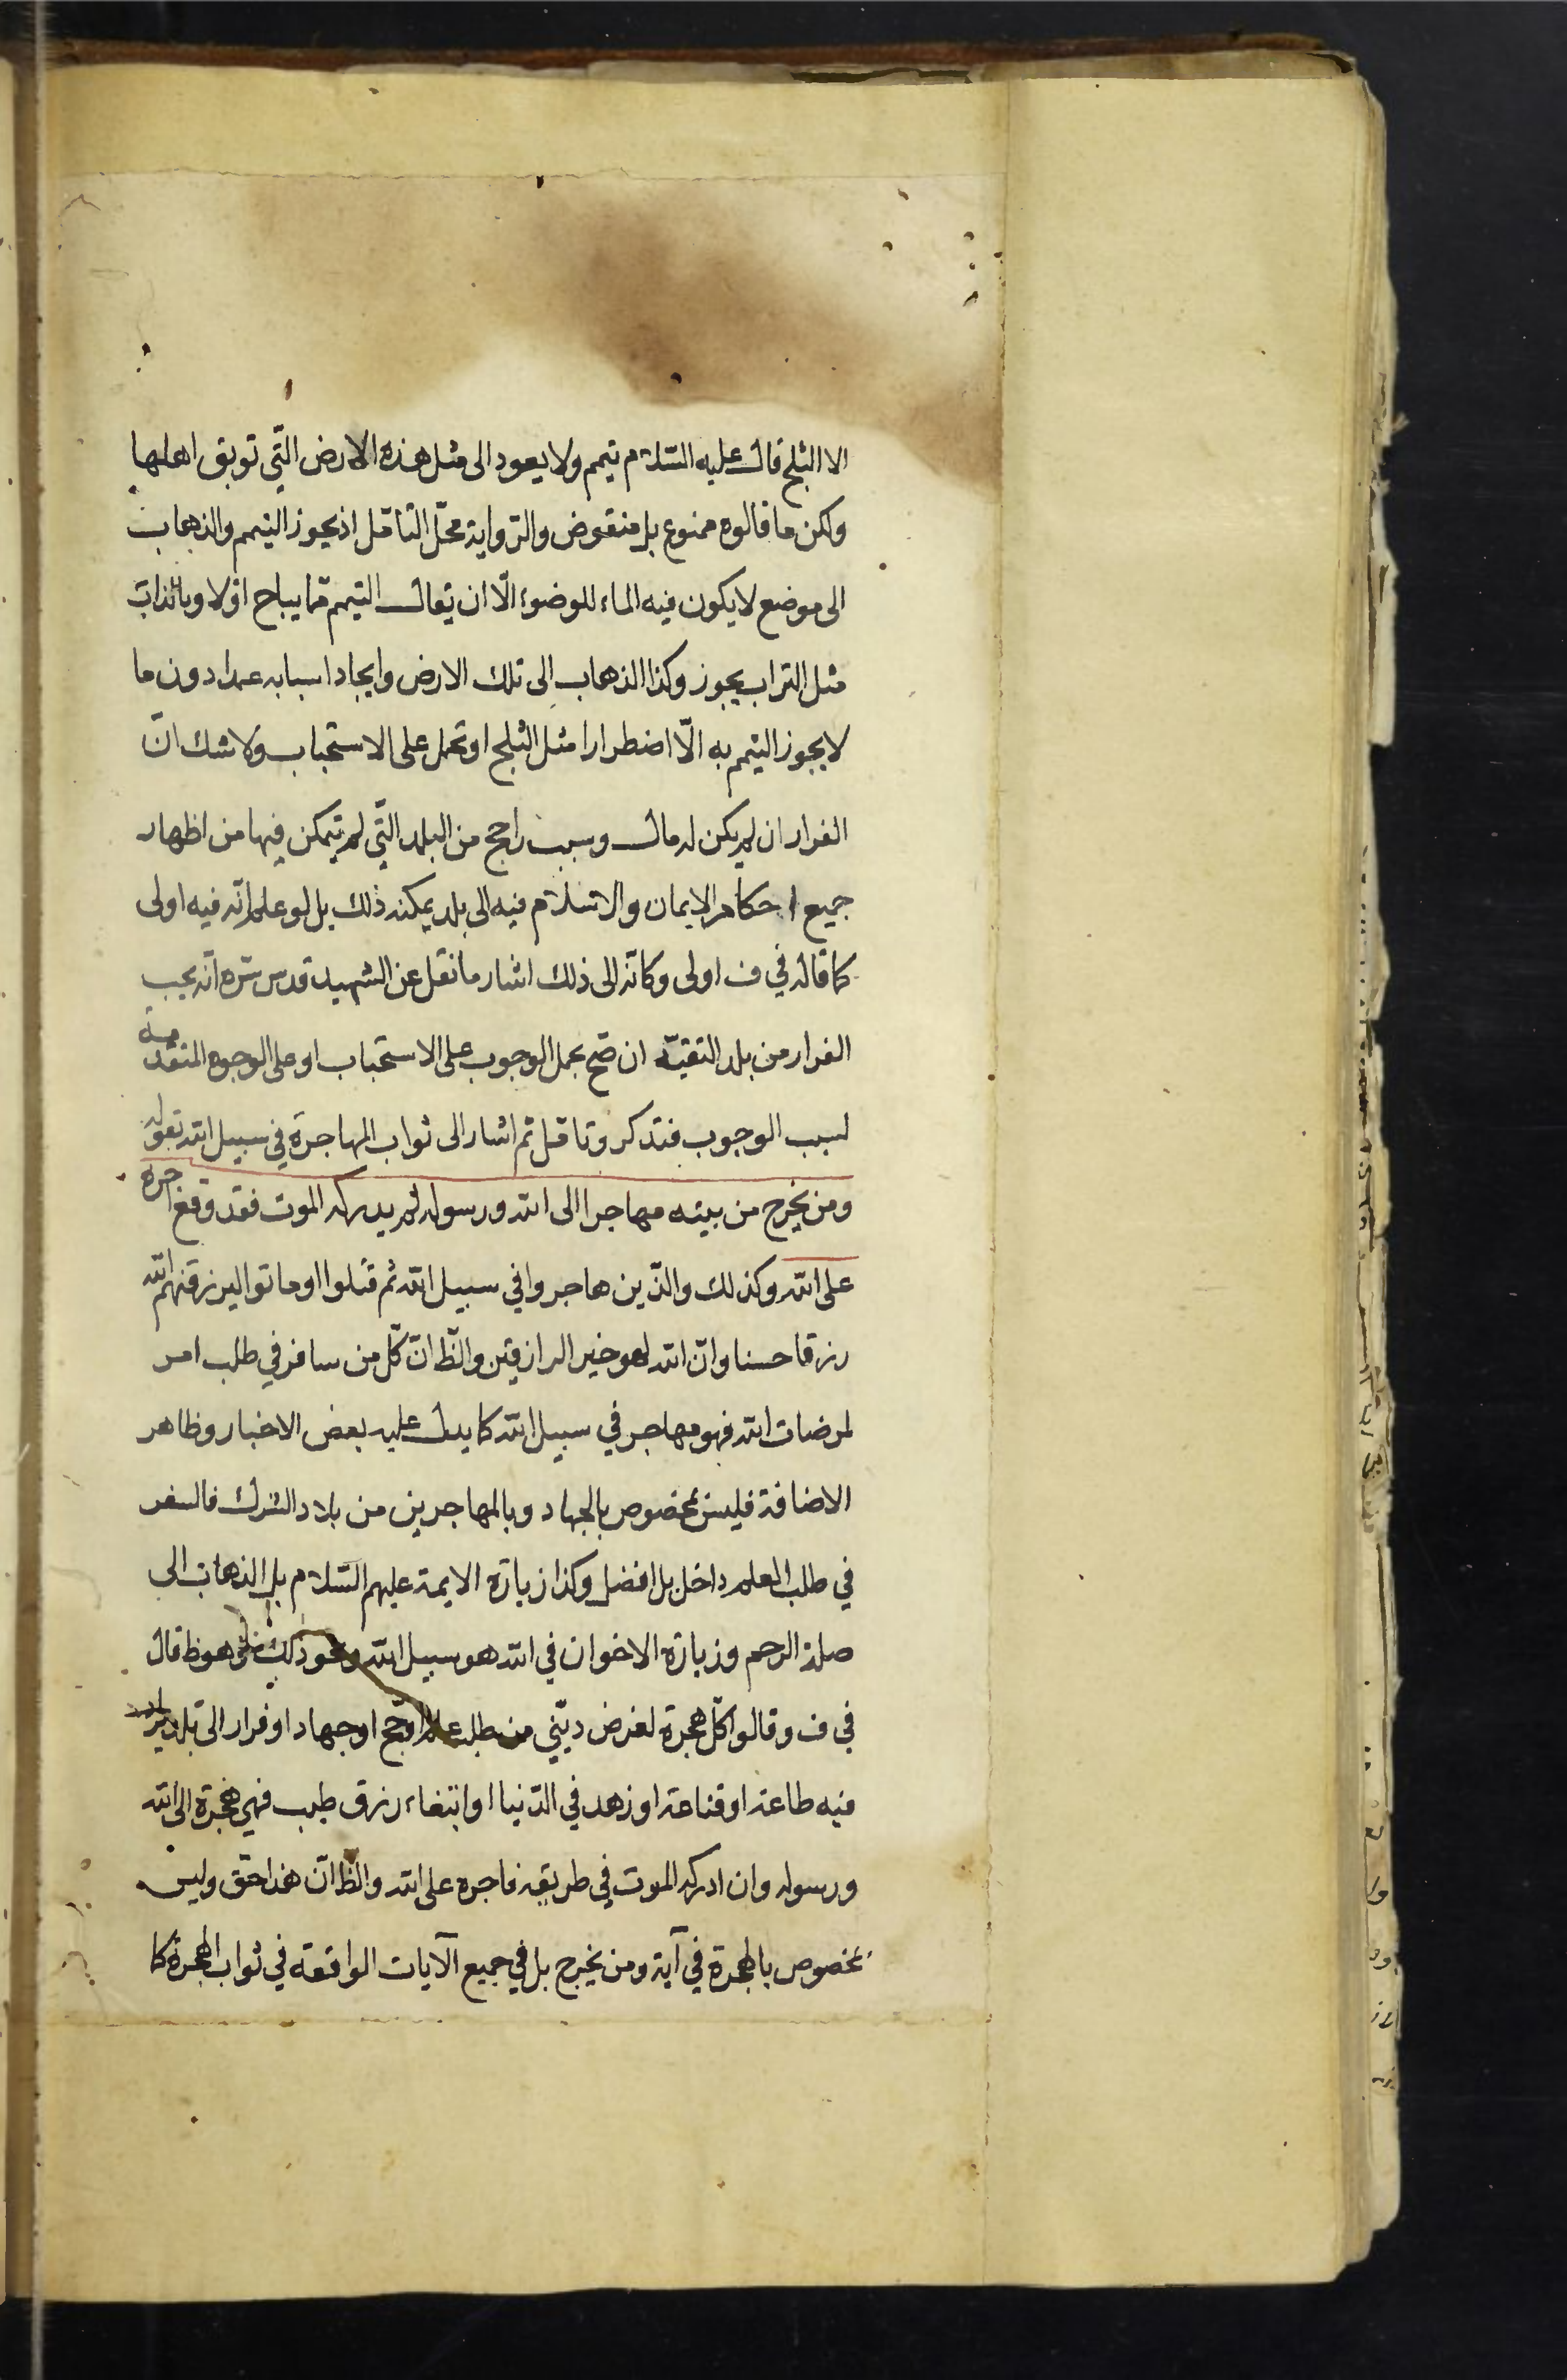 الا الثلج قال عليه السّلام تيمم ولا يعود الى مثل هذه الارض الّتي توبق اهلها
ولكن ما قالوه ممنوع بل منقوض والرّواية محلّ التأمّل اذ يجوز التيمم والذهاب
الى موضع لا يكون فيه الماء للوضوء الّا ان يقال التيمم ممّا يباح اوّلا وبالذات
مثل التراب يجوز وكذا الذهاب الى تلك الارض وايجاد اسبابه عمدا دون ما
لا يجوز التيمم به الّا اضطرارا مثل الثلج او تحمل على الاستحباب ولا شك انّ
الفرار ان لم يكن له مال وسبب راجح من البلد الّتي لم يتمكن فيها من اظهار
جميع احكام الايمان والاسلام فيه الى بلد يمكنه ذلك بل لو علم انّه فيه اولى
كما قاله في ف اولى وكانّه الى ذلك اشار ما نقل عن الشهيد قدس سّره انّه يجب
الفرار من بلد التقيّه ان صّح بحمل الوجوب على الاستحباب او على الوجوه المتقدمة
لسبب الوجوب فتذكر وتامّل ثم اشار الى ثواب المهاجرة في سبيل الله بقوله
ومن يخرج من بيته مهاجرا الى الله ورسوله ثم يدركه الموت فقد وقع اجره
على الله وكذلك والّذين هاجروا في سبيل الله ثم قتلوا او ماتوا ليرزقنهم الله
رزقا حسنا وانّ الله لهو خير الرازقين والّظ انّ كّل من سافر في طلب امر
لمرضات الله فهو مهاجر في سبيل الله كما يدل عليه بعض الاخبار وظاهر
الاضافة فليس بمخصوص بالجهاد وبالمهاجرين من بلاد الشرك فالسفر
في طلب العلم داخل بل افضل وكذا زيارة الايمة عليهم السّلام بل الذهاب الى
صلة الرحم وزيارة الاخوان في الله هو سبيل الله ونحو ذلك هو ظ قال
في ف وقالوا كّل هجرة لغرض دينّي من طلب علم او حّج او جهاد او فرار الى بلد يزداد
فيه طاعة او قناعة او زهد في الدّنيا او ابتغاء رزق طيب فهي هجرة الى الله
ورسوله وان ادركه الموت في طريقه فاجره على الله والّظ انّ هذا حّق وليس
بمخصوص بالهجرة في آية ومن يخرج بل في جميع الآيات الواقعة في ثواب الهجرة كما